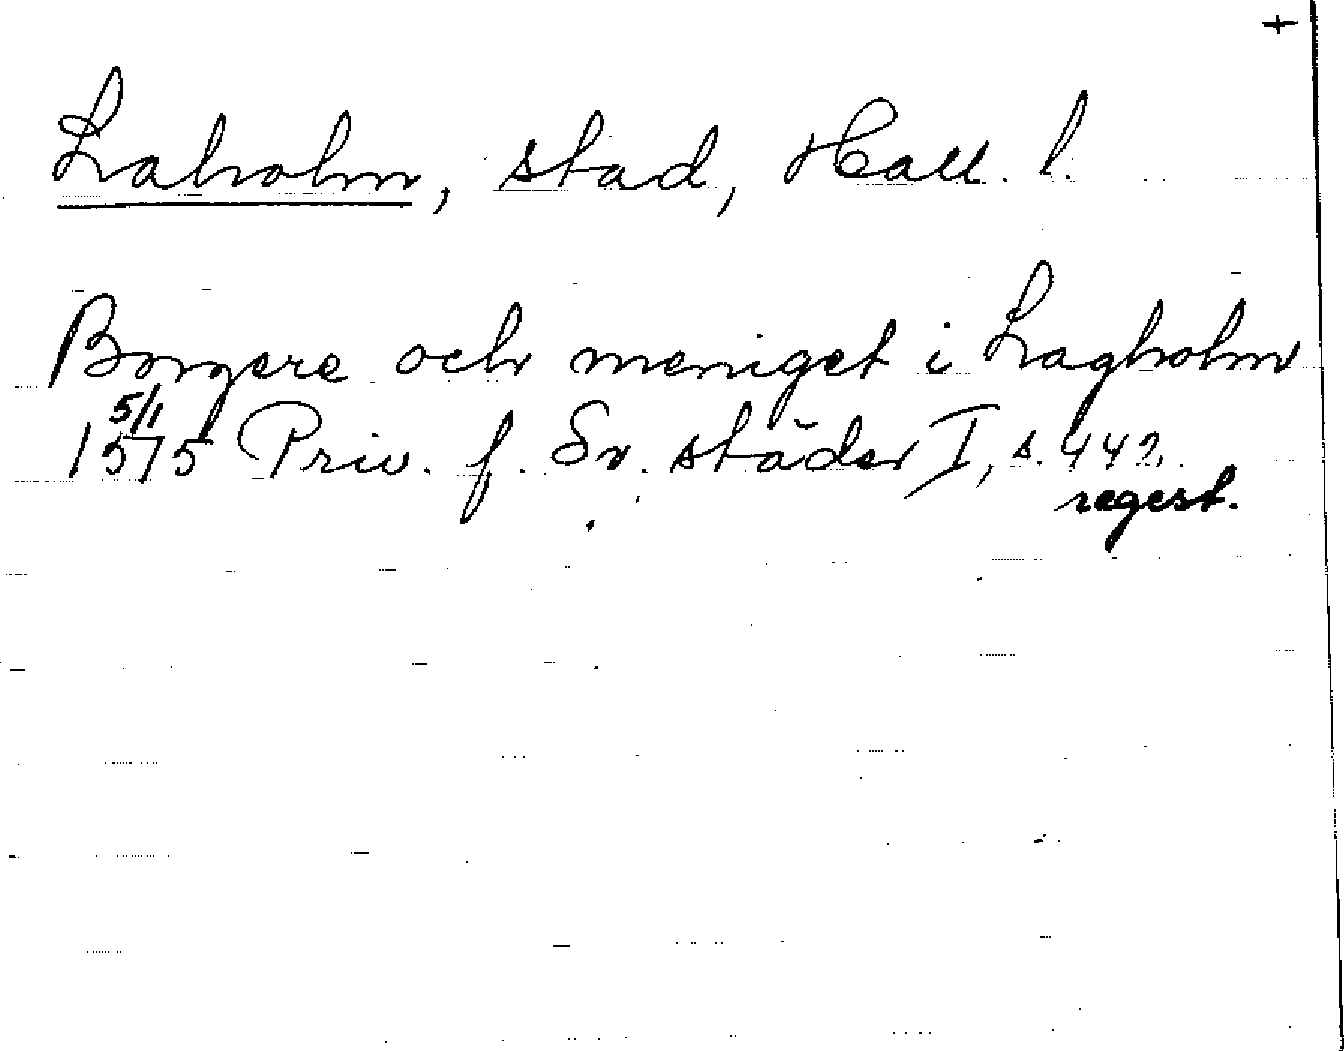 +
Laholm, stad, Hall. l.
Borgere och meniget i Lagholm
5/1
1575 Priv. f. Sv. städer I, s. 442.
regest.